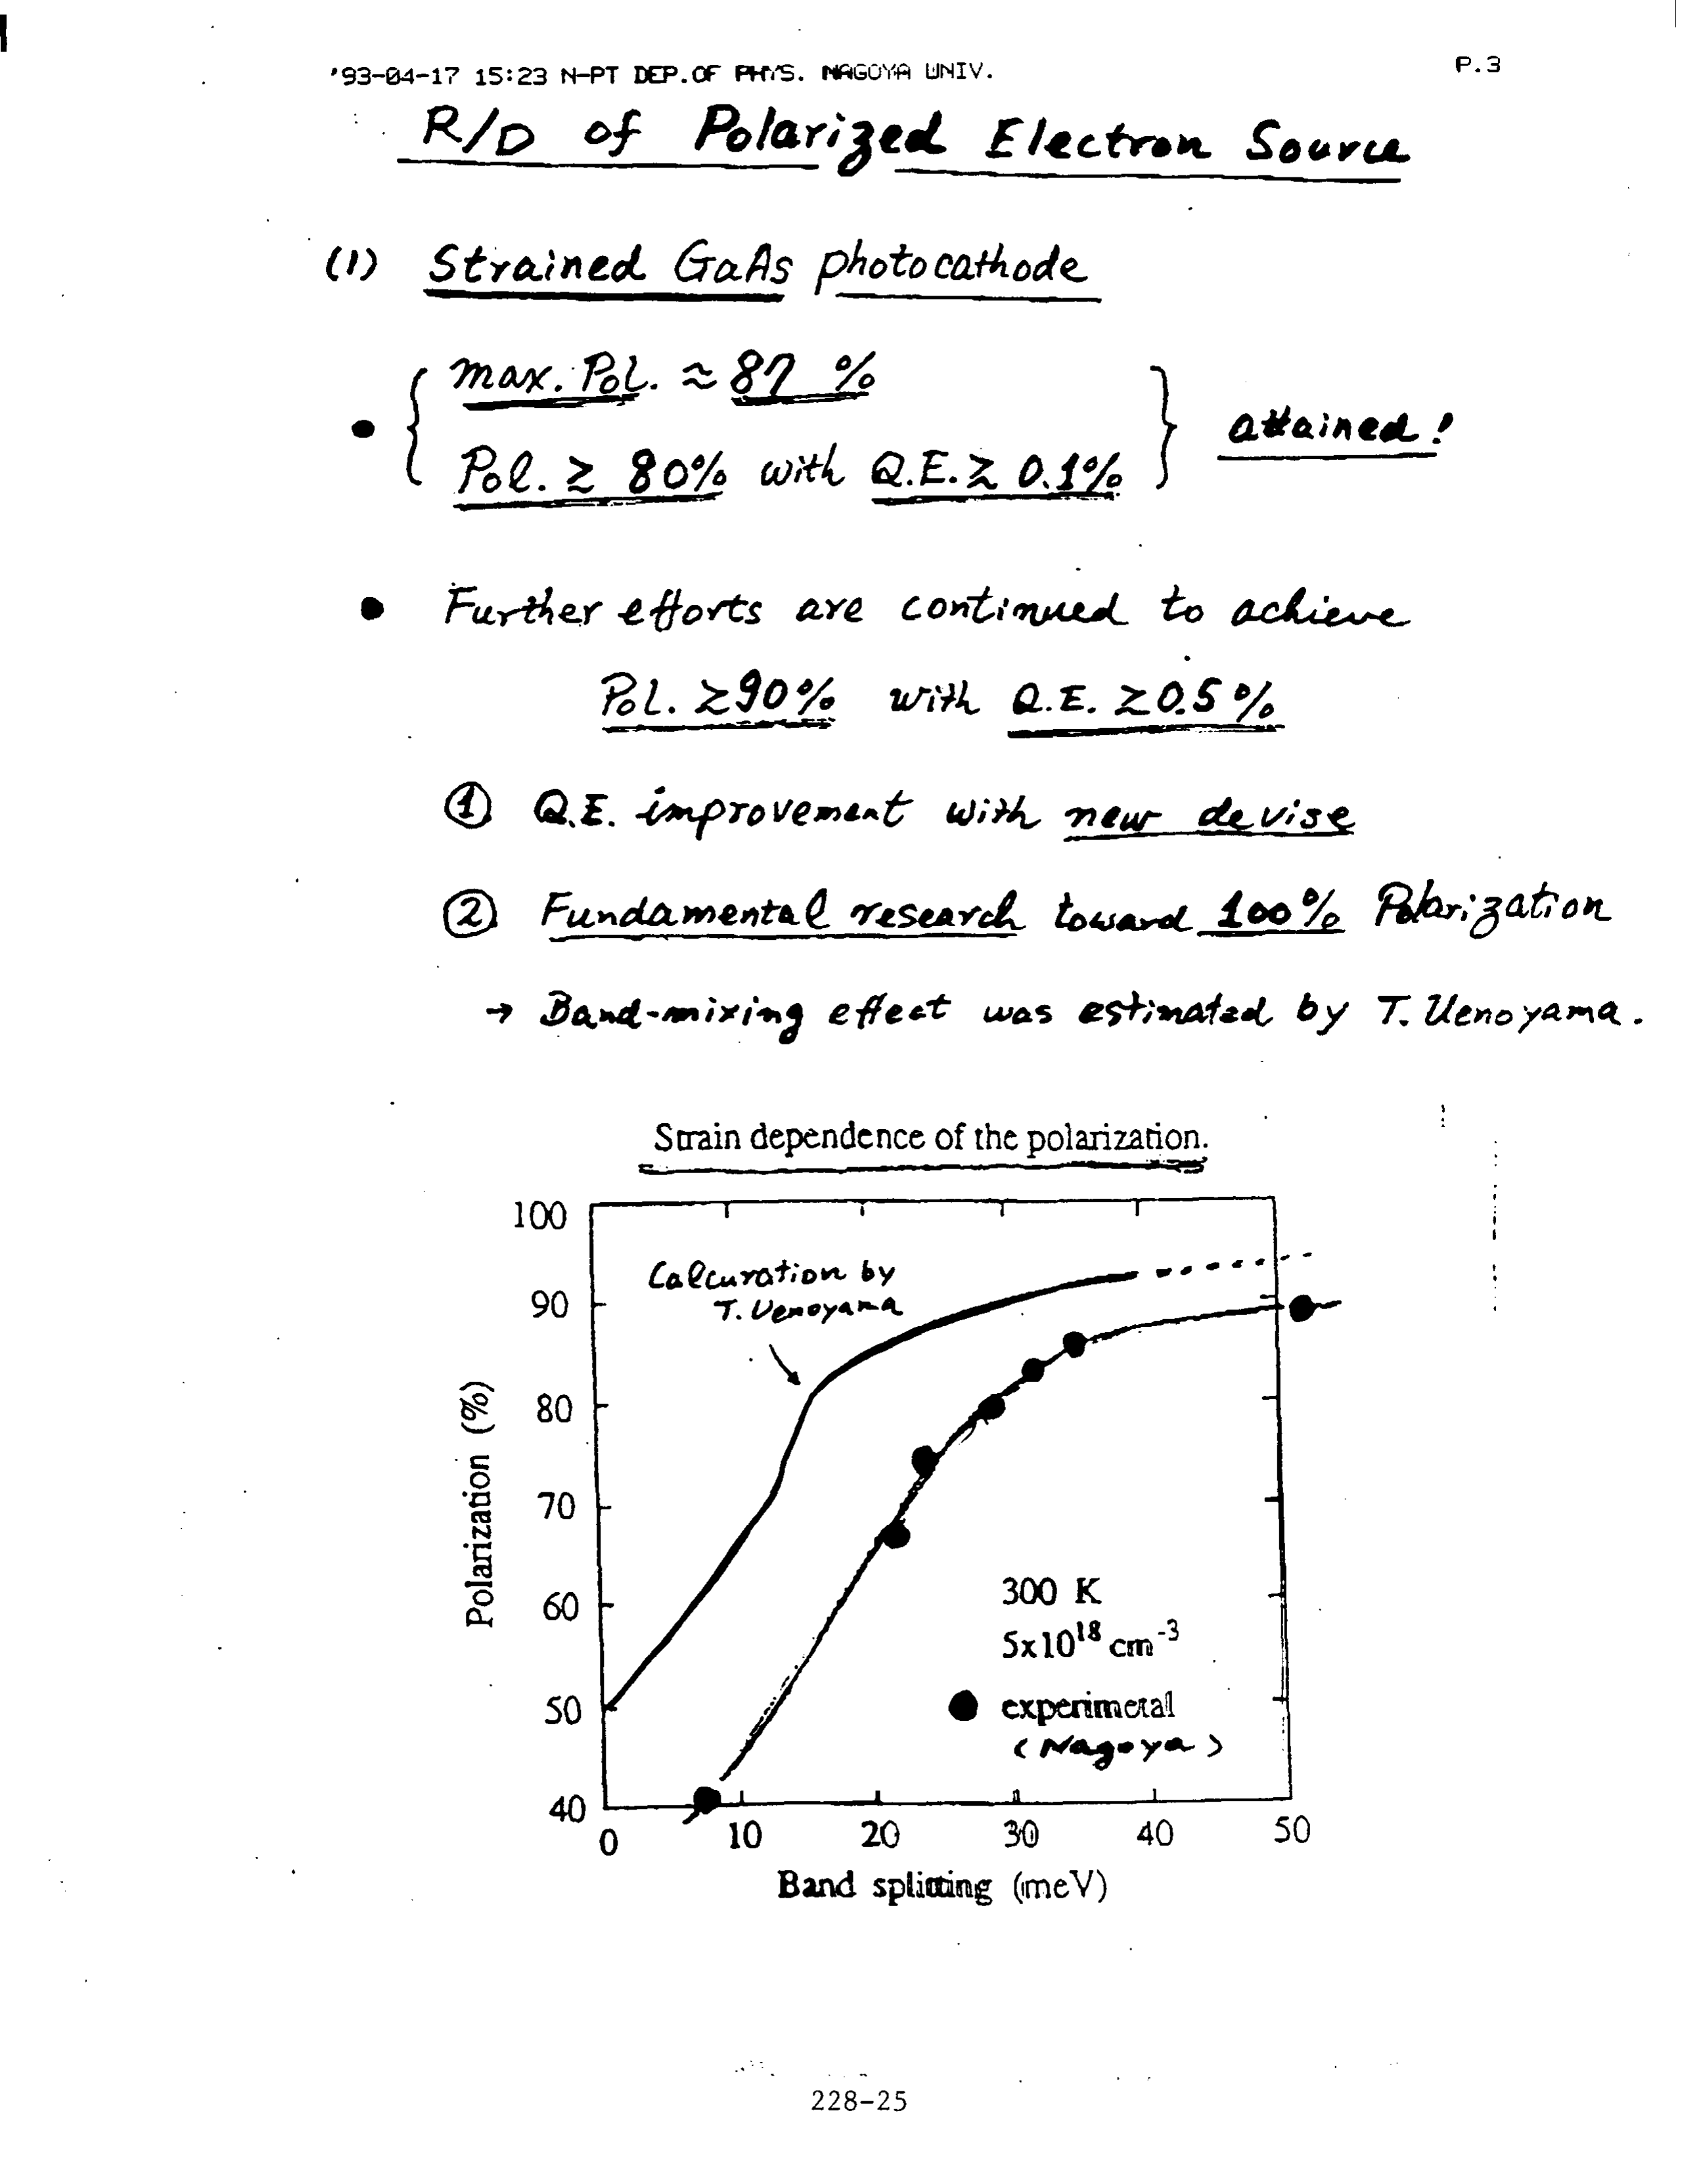 '93-04-17 15:23 N-PT DEP.OF PHYS. NAGOYA UNIV. P.3
R/D of Polarized Electron Source
(1) Strained GaAs photocathode
• { max. Pol. ≈ 87 %
Pol. ≳ 80% with Q.E. ≳ 0.1% } attained!
• Further efforts are continued to achieve
Pol. ≳ 90% with Q.E. ≳ 0.5%
① Q.E. improvement with new devise
② Fundamental research toward 100% Polarization
→ Band-mixing effect was estimated by T. Uenoyama.
Strain dependence of the polarization.
100
90
80
70
60
50
40
Polarization (%)
Calcuration by
T. Uenoyama
300 K
5x10¹⁸ cm⁻³
● experimetal
(Nagoya)
0 10 20 30 40 50
Band splitting (meV)
228-25